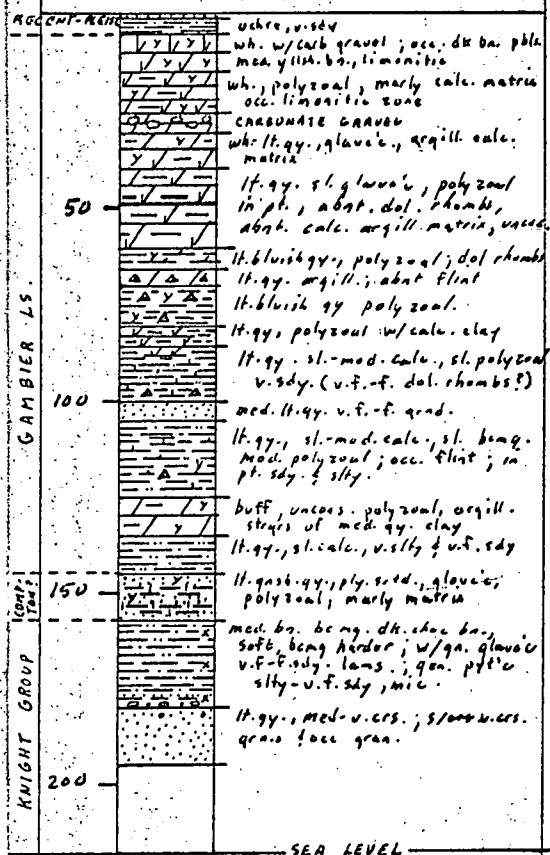 RECENT-PLEIST
ochre, v.sdy
wh. w/carb gravel ; occ. dk bn. pbls
med. yllsh. bn., limonitic
wh., polyzoal, marly calc. matrix
occ. limonitic zone
CARBONATE GRAVEL
wh-lt.gy., glauc'c., argill calc.
matrix
50
lt.gy. sl. glauc'c, polyzoal
in pt., abnt. dol. rhombs,
abnt. calc. argill matrix, uncons.
lt.bluish gy., polyzoal; dol rhombs
lt.gy. argill.; abnt flint
lt.bluish gy polyzoal.
lt.gy, polyzoal w/calc. clay
lt.gy. sl.-mod.calc., sl. polyzoal
v.sdy. (v.f.-f. dol. rhombs?)
100
med. lt.gy. v.f.-f. grnd.
lt.gy., sl.-mod.calc., sl. bcmg.
mod. polyzoal; occ. flint; in
pt. sdy. & slty.
buff, uncons. polyzoal, argill.
strgrs of med. gy. clay
lt.gy., sl.calc., v.slty & v.f. sdy
GAMBIER LS.
COMPTON?
150
lt.gnsh.gy., ply.srtd., glauc'c,
polyzoal; marly matrix
KNIGHT GROUP
med. bn. bcmg. dk.choc bn.,
soft, bcmg harder; w/gn. glauc'c
v.f-f.sdy. lams.; gen. pyt'c
slty-v.f.sdy, mic.
lt.gy., med-v.crs.;
grns & occ gran.
200
SEA LEVEL